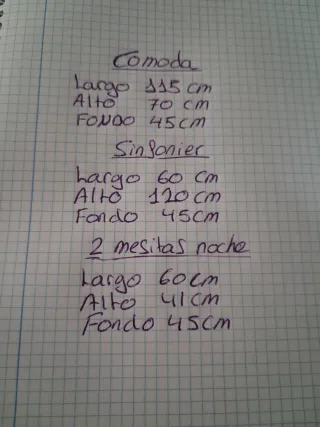 Comoda
Largo 115 cm
Alto 70 cm
FONDO 45cm
Sinfonier
Largo 60 cm
Alto 120cm
Fondo 45cm
2 mesitas noche
Largo 60cm
Alto 41cm
Fondo 45cm